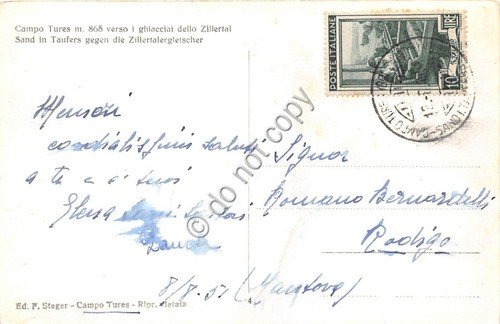 Campo Tures m. 868 verso i ghiacciai dello Zillertal
Sand in Taufers gegen die Zillertalergletscher
POSTE ITALIANE
10
cordialissimi saluti
a te e ai tuoi
Elena
8/8.51
Signor
Romano Bernardelli
Rodigo
(Mantova)
© do not copy
Ed. F. Steger - Campo Tures - Ripr. vietata